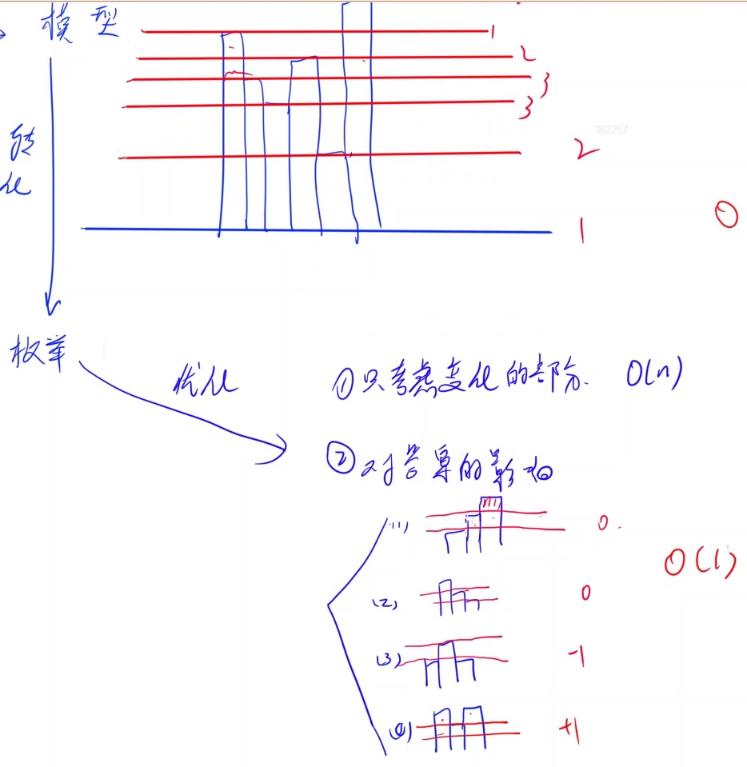 模型
1
2
3
3
362257
2
1
转化
枚举
优化
①只考虑变化的部分. O(n)
②对答案的影响
(1) 0.
O(1)
(2) 0
(3) -1
(4) +1